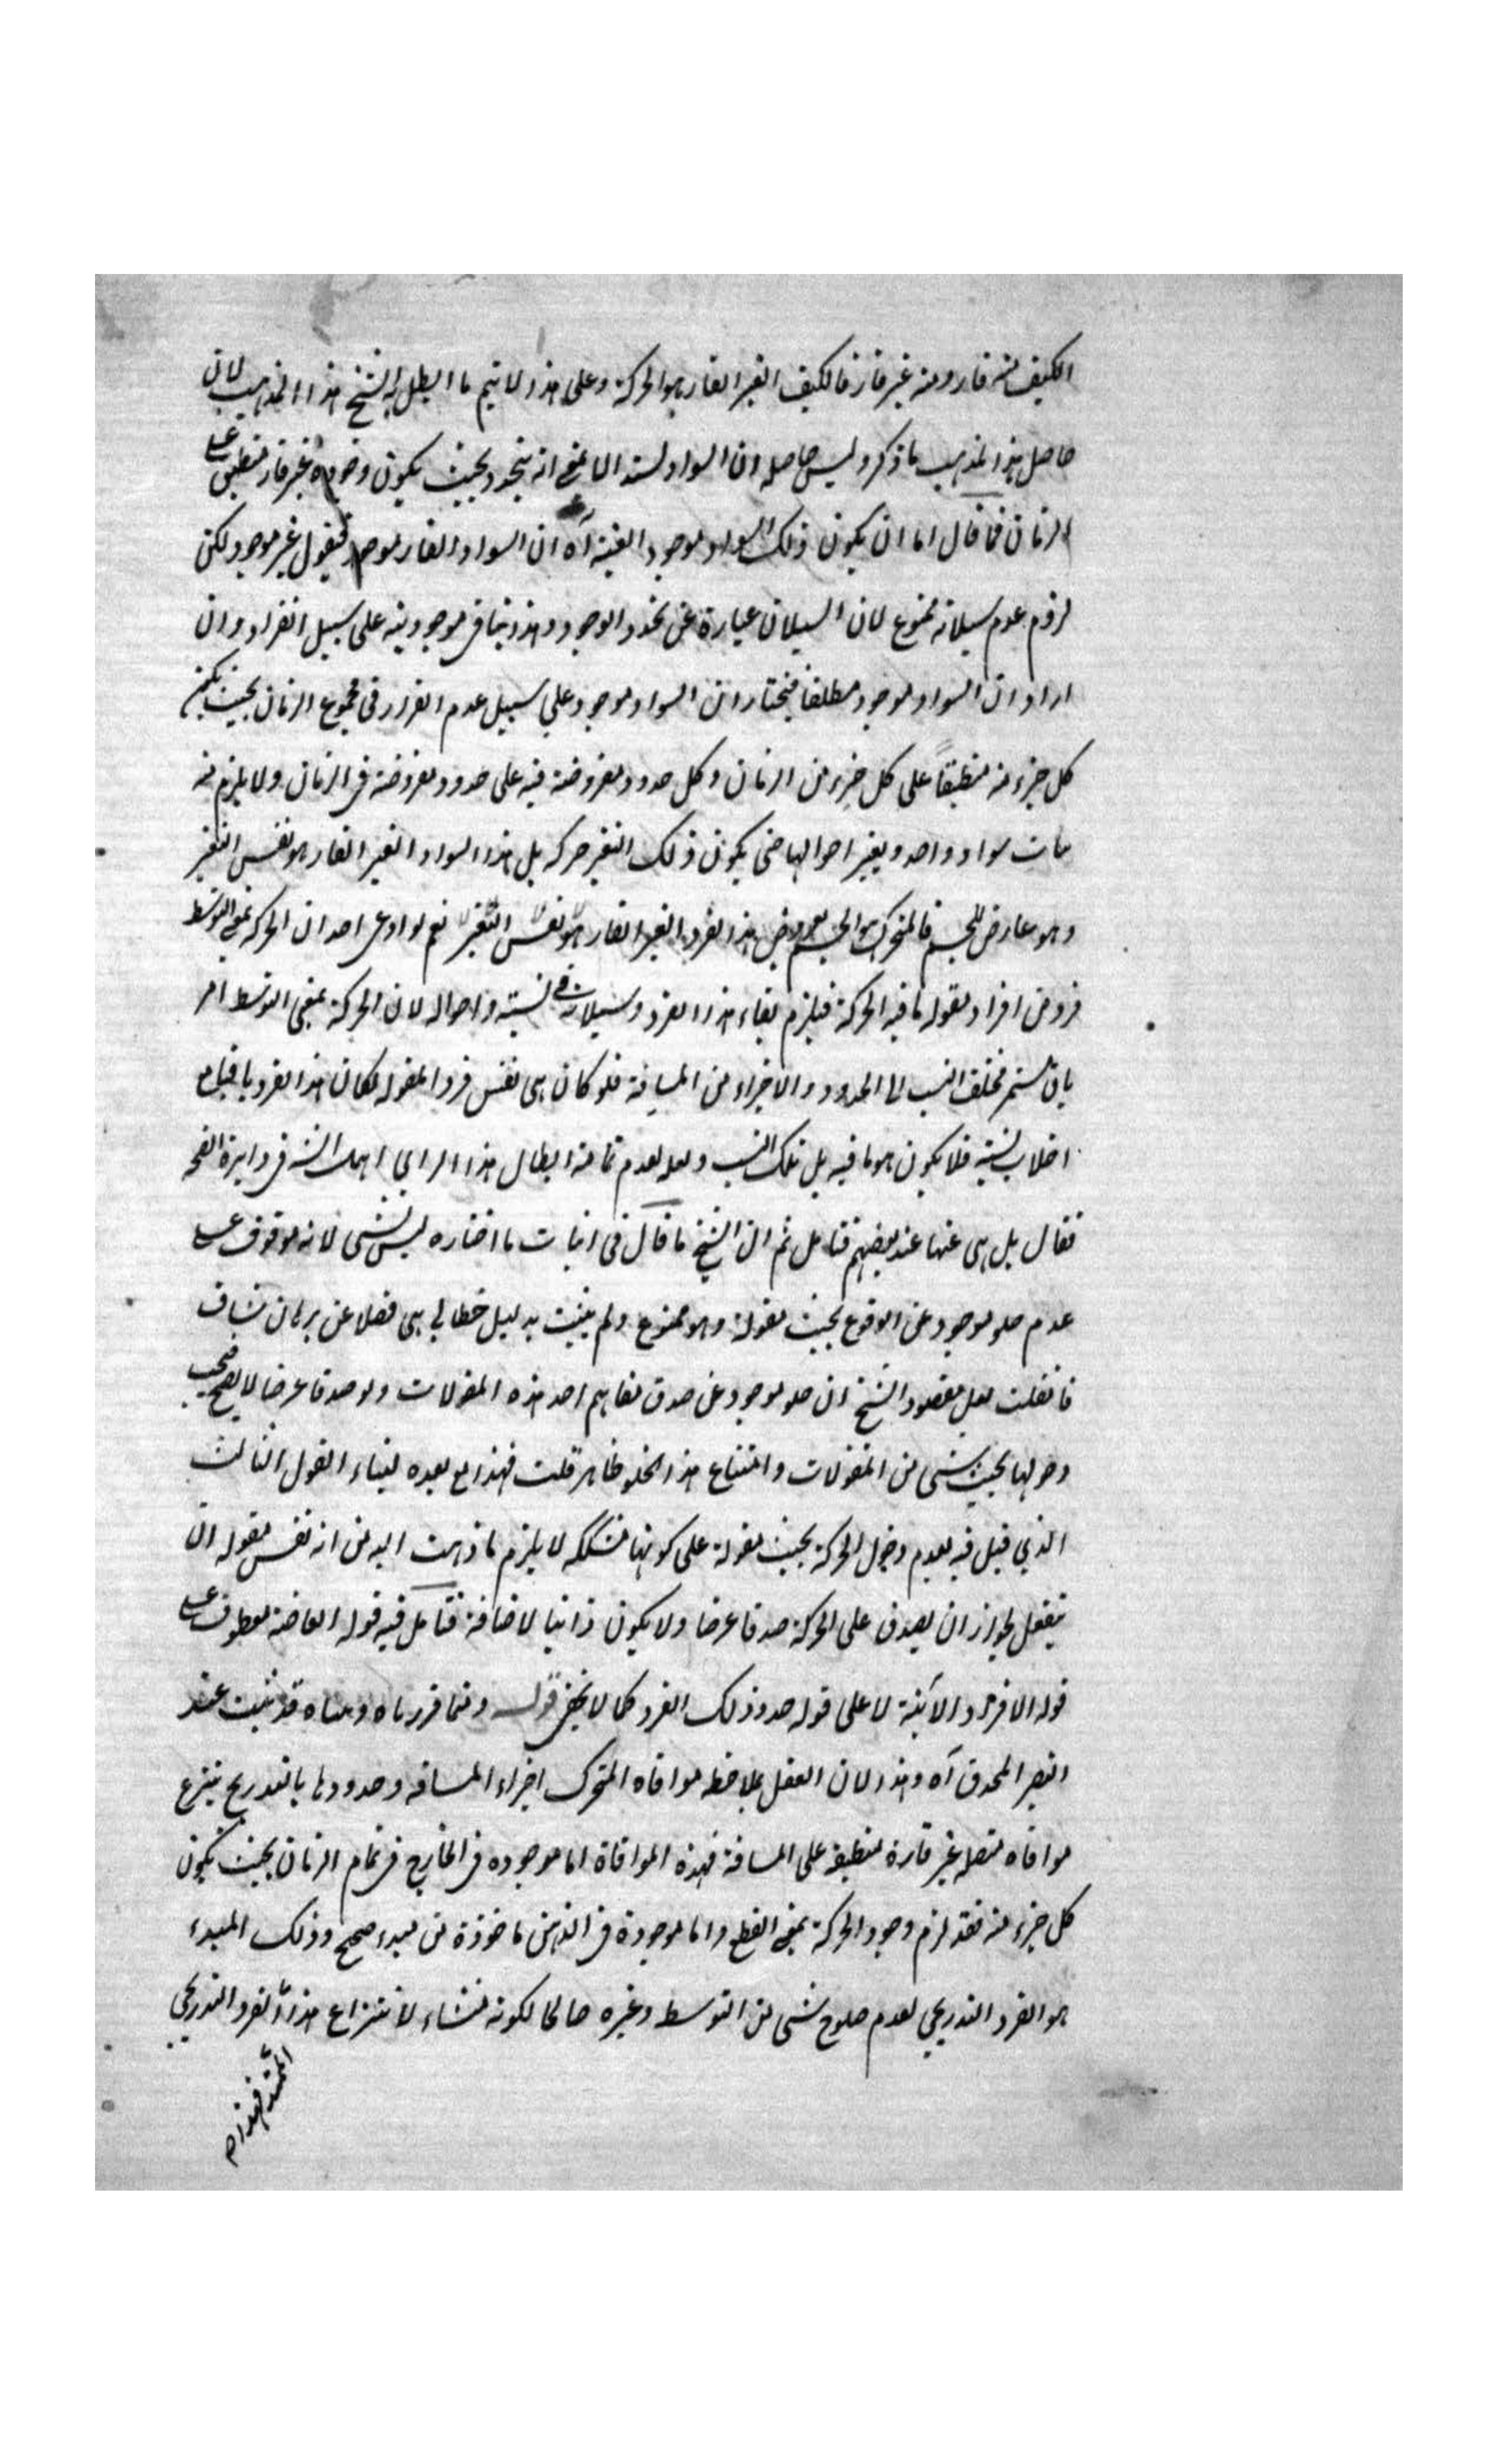 الكيف منه قار ومنه غير قار فالكيف الغير القار هو الحركة وعلى هذا لا يتم ما ابطل به الشيخ هذا المذهب لان
حاصل هذا المذهب ما ذكر وليس حاصله ان السواد يشتد الا بمعنى انه يتجدد بحيث يكون وجوده غير قار منطبق على
الزمان فما قال اما ان يكون ذلك السواد موجودا بعينه آه ان السواد القار موجود فيقول غير موجود لكن
لزوم عدم سيلانه ممنوع لان السيلان عبارة عن تجدد الوجود وهذا ينافي موجوديته على سبيل القرار وان
اراد ان السواد موجود مطلقا فيختار ان السواد موجود على سبيل عدم القرار في مجموع الزمان بحيث يكون
كل جزء منه منطبقاً على كل جزء من الزمان وكل حدود مفروضة فيه على حدود مفروضة في الزمان ولا يلزم منه
سواد واحد وبغير احوالها حتى يكون ذلك التغير حركة بل هذا السواد الغير القار هو نفس التغير
وهو عارض للجسم فالمتحرك هو الجسم هذا الفرد الغير القار هو نفس التغير نعم لو ادعى احد ان الحركة بمعنى التوسط
فرد من افراد مقولة ما فيه الحركة فيلزم بقاء هذا الفرد وسيلانه في نسبته واحواله لان الحركة بمعنى التوسط امر
باق مستمر مختلف النسب الى الحدود والاجزاء من المسافة فلو كان هى نفس فرد المقولة لكان هذا الفرد باقيا مع
اختلاف نسبته فلا يكون هو ما فيه بل تلك النسب ولعله لعدم متانة ابطال هذا الراي
فقال بل هى عنها عند بعضهم فتامل ثم ان الشيخ ما قال فى اثبات ما اختاره ليس بشى لانه موقوف على
عدم خلو موجود عن الوقوع تحت مقولة وهو ممنوع ولم يثبت بدليل خطابي فضلا عن برهان شاف
فان قلت لعل مقصود الشيخ ان خلو موجود عن صدق مفاهيم احد هذه المقولات ولو صدقا عرضا لا يصح فيجب
دخولها تحت شى من المقولات وامتناع هذا الخلو ظاهر قلت فهذا مع بعده لبناء القول الثالث
الذي قيل فيه بعدم دخول الحركة تحت مقولة على كونها مشككة لا يلزم ما ذهبت اليه من انه نفس مقولة ان
ينفعل لجواز ان يصدق على الحركة صدقا عرضا ولا يكون ذاتيا لاضافة فتامل فيه قوله معطوف على
قوله الافراد الآنية لا على قوله حدوذلك الفرد كما لا يخفى قوله وفيما قررناه قد ثبت عند
البصر المحدق آه وهذا لان العقل بملاحظة موافاة المتحرك اجزاء المسافة وحدودها بالتدريج ينتزع
موافاة متصلة غير قارة منطبقة على المسافة فهذه الموافاة اما موجودة فى الخارج فى تمام الزمان بحيث يكون
كل جزء منه فقد لزم وجود الحركة بمعنى القطع واما موجودة فى الذهن ماخوذة من مبدء صحيح وذلك المبدء
هو الفرد التدريجي لعدم صلوح شى من التوسط وغيره صالحا لكونه منشاء لانتزاع هذا الفرد التدريجي
الممتد فهذا